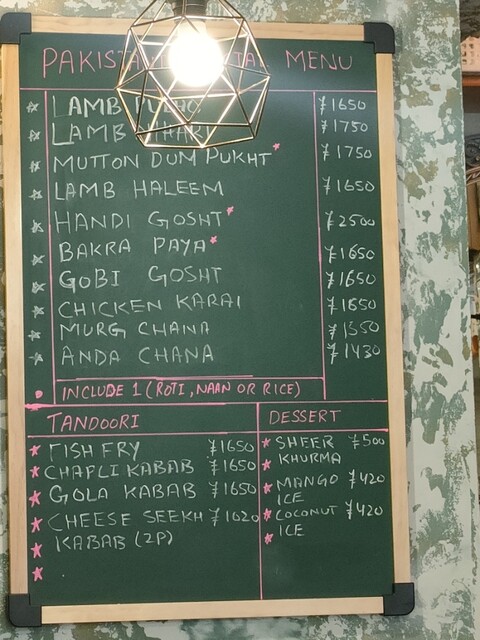 MENU
LAMB ¥1650
LAMB ¥1750
MUTTON DUM PUKHT ¥1750
LAMB HALEEM ¥1650
HANDI GOSHT ¥2500
BAKRA PAYA ¥1650
GOBI GOSHT ¥1650
CHICKEN KARAI ¥1650
MURG CHANA ¥1550
ANDA CHANA ¥1430
INCLUDE 1 (ROTI, NAAN OR RICE)
TANDOORI
FISH FRY ¥1650
CHAPLI KABAB ¥1650
GOLA KABAB ¥1650
CHEESE SEEKH ¥1020
KABAB (2P)
DESSERT
SHEER ¥500
KHURMA
MANGO ¥420
ICE
COCONUT ¥420
ICE